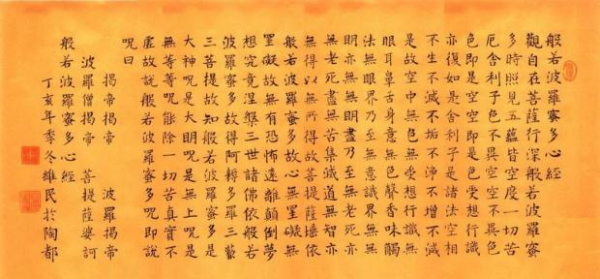 般若波羅蜜多心經
觀自在菩薩行深般若波羅蜜
多時照見五蘊皆空度一切苦
厄舍利子色不異空空不異色
色即是空空即是色受想行識
亦復如是舍利子是諸法空相
不生不滅不垢不淨不增不減
是故空中無色無受想行識無
眼耳鼻舌身意無色聲香味觸
法無眼界乃至無意識界無無
明亦無無明盡乃至無老死亦
無老死盡無苦集滅道無智亦
無得以無所得故菩提薩埵依
般若波羅蜜多故心無罣礙無
罣礙故無有恐怖遠離顛倒夢
想究竟涅槃三世諸佛依般若
波羅蜜多故得阿耨多羅三藐
三菩提故知般若波羅蜜多是
大神呪是大明呪是無上呪是
無等等呪能除一切苦真實不
虛故說般若波羅蜜多呪即說
呪曰
揭帝揭帝 波羅揭帝
波羅僧揭帝 菩提薩婆訶
般若波羅蜜多心經
丁亥年季冬雄民於陶都